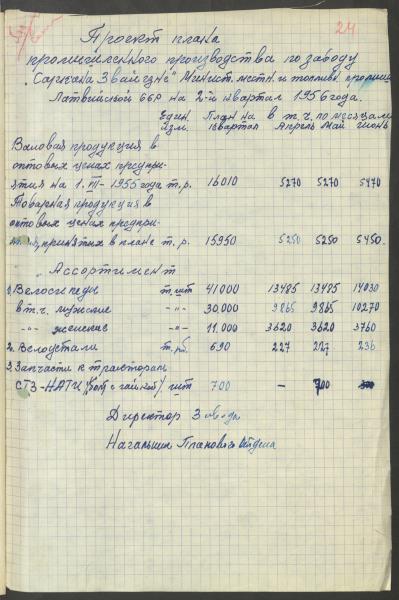 24
Проект плана
промышленного производства по заводу
"Саркана Звайгзне" Минист. местн. и топливн. промышл.
Латвийской ССР на 2-й квартал 1956 года.
Един. План на в т.ч. по месяцам
Изм. квартал Апрель Май Июнь
Валовая продукция в
оптовых ценах предпри-
ятия на 1.VII-1955 года т.р. 16010 5270 5270 5470
Товарная продукция в
оптовых ценах предпри-
ятия, принятых в плане т.р. 15950 5250 5250 5450.
Ассортимент
1. Велосипеды шт 41000 13485 13485 14030
в т.ч. мужские -"- 30.000 9865 9865 10270
-"- женские -"- 11.000 3620 3620 3760
2. Велодетали т.рб. 690 227 227 236
3. Запчасти к тракторам
СТЗ-НАТИ (болт с гайкой) шт 700 — 700
Директор Завода
Начальник Планового Отдела